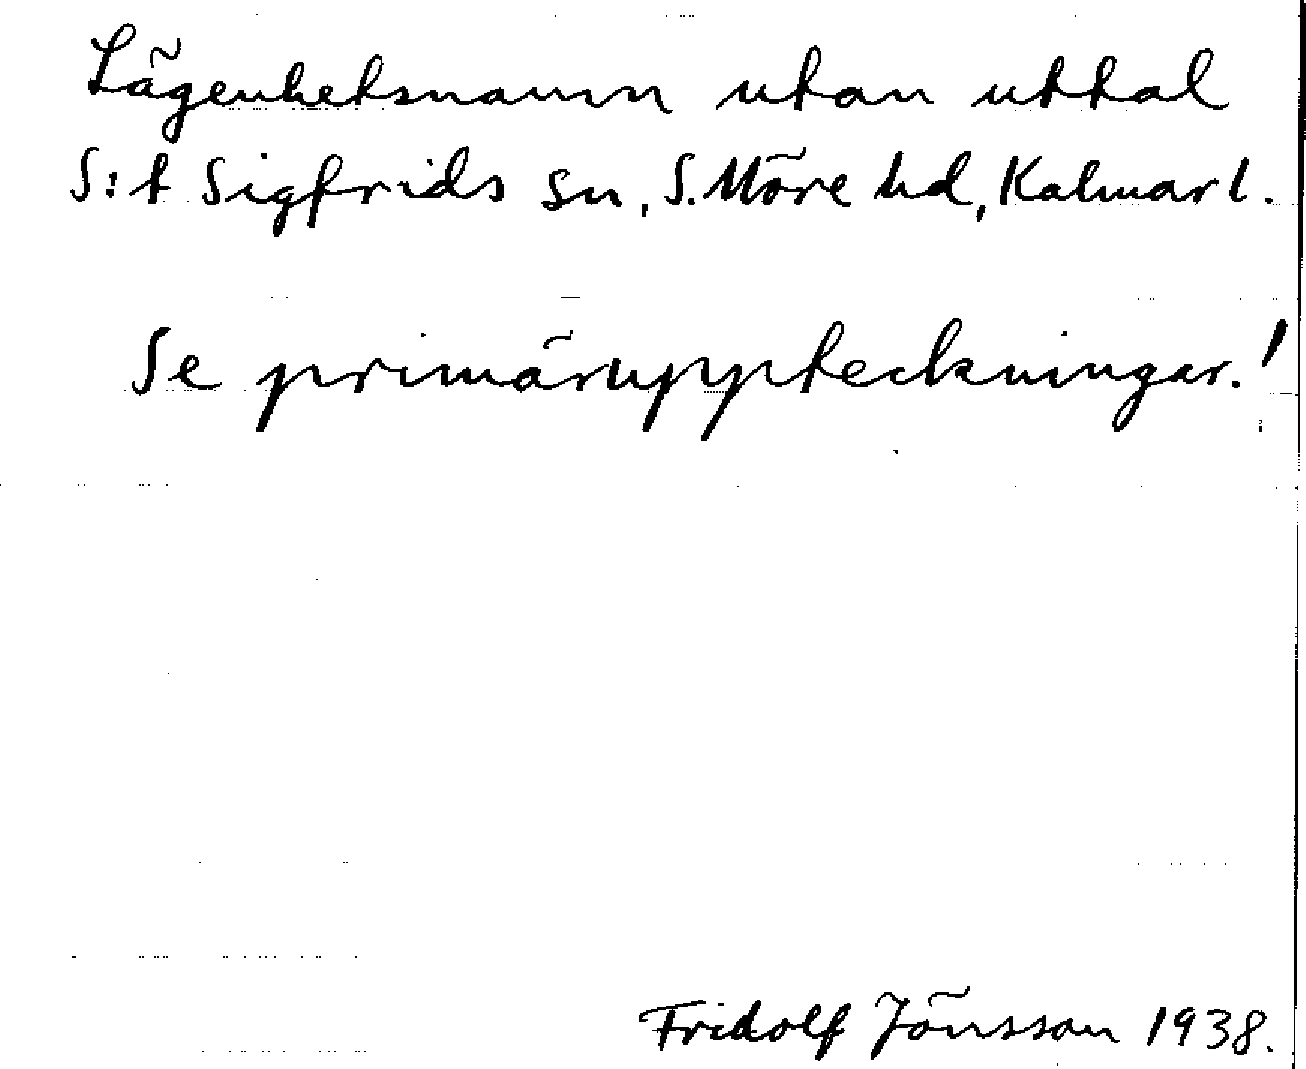 Lägenhetsnamn utan uttal
S:t Sigfrids sn, S. Möre hd, Kalmar l.
Se primäruppteckningar.!
Fridolf Jönsson 1938.